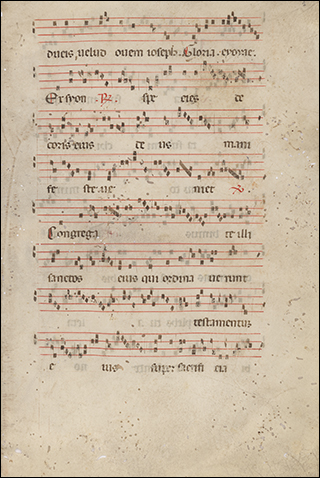 ducis uelud ouem ioseph. Gloria. euouae.
Ex syon R. spe cies de
coris eius de us mani
fe ste ue niet R.
Congrega te illi
sanctos eius qui ordina ue runt
testamentum
e ius super sacrifi cia